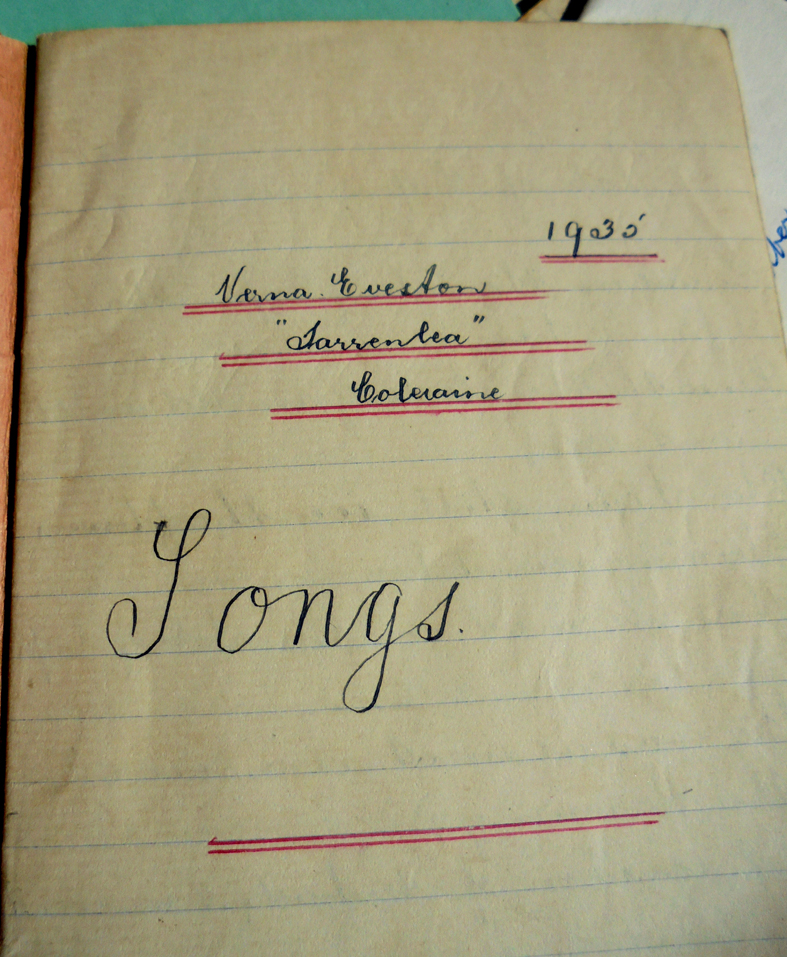 1935
Verna. Eveston
"Tarrenlea"
Coleraine
Songs.